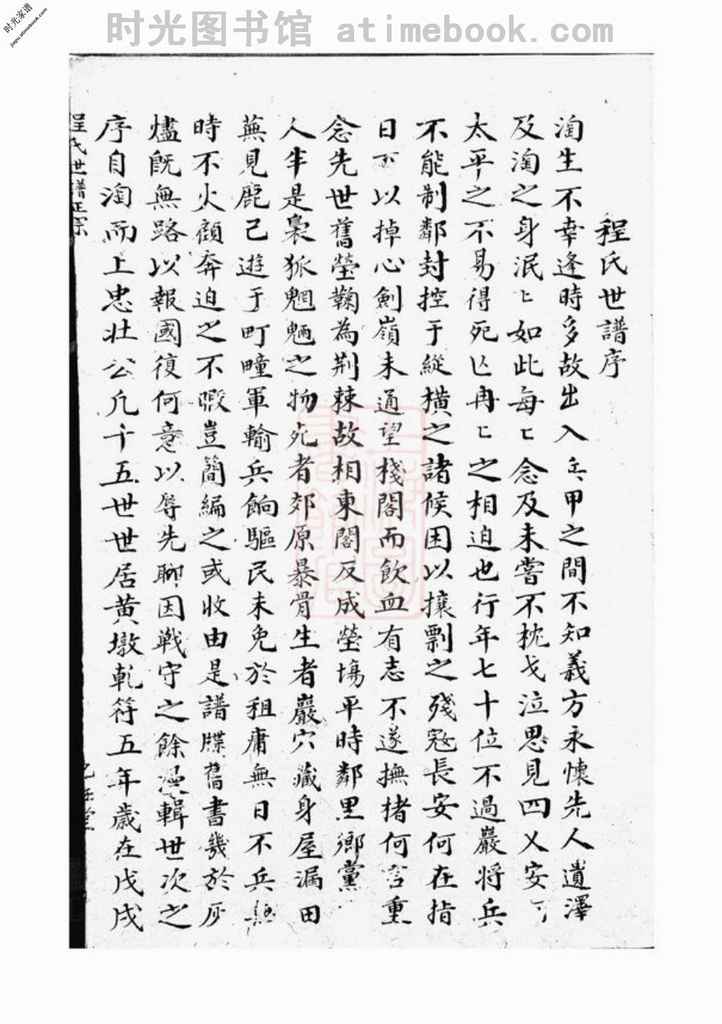 时光图书馆 atimebook.com
时光家谱
jiapu.atimebook.com
程氏世譜序
淘生不幸逢時多故出入兵甲之間不知義方永懷先人遺澤
及淘之身泯匕如此每匕念及未嘗不枕戈泣思見四乂安可
太平之不易得死亾冉匕之相迫也行年七十位不過巖将兵
不能制鄰封控于縱橫之諸候困以攘剽之殘寇長安何在指
日可以掉心劍嶺未通望棧閣而飲血有志不遂撫楮何言重
念先世舊塋鞠為荆棘故相東閣反成塋塲平時鄰里鄉黨
人半是梟狐魍魎之物死者郊原暴骨生者巖穴藏身屋漏田
蕪見鹿己遊于町疃軍輸兵餉驅民未免於租庸無日不兵
時不火顧奔迫之不暇豈簡編之或收由是譜牒舊書幾於灰
燼旣無路以報國復何意以辱先聊因戰守之餘漫輯世次之
序自淘而上忠壯公凡十五世世居黄墩乹符五年歲在戊戌
程氏世譜正宗